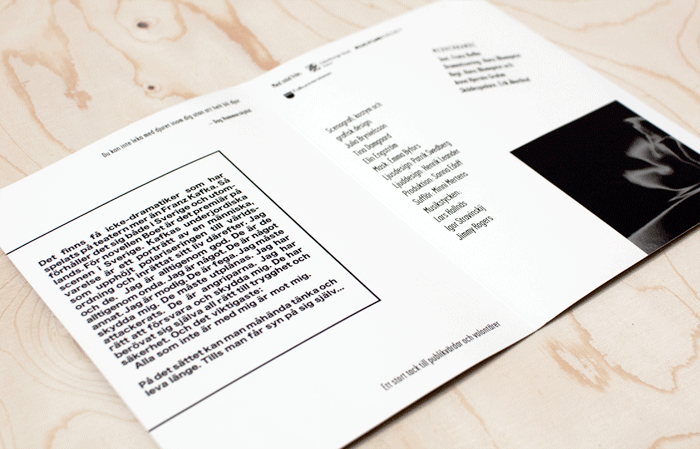 Du kan inte leka med djuret inom dig utan att helt bli djur.
Det finns få icke-dramatiker som har
spelats på teatern mer än Franz Kafka. Så
förhåller det sig både i Sverige och utom-
lands. För novellen Boet är det premiär på
scenen i Sverige. Kafkas underjordiska
varelse är ett porträtt av en mänsklig
som upphöjt polariseringen till världs-
ordning och inrättat sitt liv därefter. Jag
och de. Jag är alltigenom god. De är de
alltigenom onda. Jag är något De är något
annat. Jag är modig. De är fega. Jag måste
skydda mig. De måste utplånas. Jag har
attackerats. De är angriparna. Jag har
rätt att försvara och skydda mig. De har
berövat sig själva all rätt till trygghet och
säkerhet. Och det viktigaste:
Alla som inte är med mig är mot mig.
På det sättet kan man måhända tänka och
leva länge. Tills man får syn på sig själv...
Med stöd från
Scenografi, kostym och
grafisk design:
Julia Brynielsson
Tina Damgaard
Elin Engström
Musik: Emma Byfors
Ljusdesign: Patrik Swedberg
Ljuddesign: Henrik Leander
Produktion: Sanna Edoff
Sufflör: Minna Mertens
Musikstycken:
Lars Hollnäs
Igor Stravinskij
Jimmy Rogers
Ett stort tack till publikvärdar och volontärer
MEDVERKANDE
Text: Franz Kafka